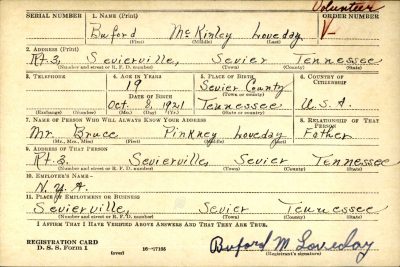 Volunteer
SERIAL NUMBER 1. NAME (Print) ORDER NUMBER
Buford McKinley Loveday V-
(First) (Middle) (Last)
2. ADDRESS (Print)
Rt. 3, Sevierville, Sevier Tennessee
(Number and street or R. F. D. number) (Town) (County) (State)
3. TELEPHONE 4. AGE IN YEARS 5. PLACE OF BIRTH 6. COUNTRY OF CITIZENSHIP
19 Sevier County
DATE OF BIRTH (Town or county)
Oct. 8, 1921 Tennessee U.S.A.
(Exchange) (Number) (Mo.) (Day) (Yr.) (State or country)
7. NAME OF PERSON WHO WILL ALWAYS KNOW YOUR ADDRESS 8. RELATIONSHIP OF THAT PERSON
Mr. Bruce Pinkney Loveday Father
(Mr., Mrs., Miss) (First) (Middle) (Last)
9. ADDRESS OF THAT PERSON
Rt. 3, Sevierville, Sevier Tennessee
(Number and street or R. F. D. number) (Town) (County) (State)
10. EMPLOYER'S NAME—
N.Y.A.
11. PLACE OF EMPLOYMENT OR BUSINESS
Sevierville, Sevier Tennessee
(Number and street or R. F. D. number) (Town) (County) (State)
I AFFIRM THAT I HAVE VERIFIED ABOVE ANSWERS AND THAT THEY ARE TRUE.
REGISTRATION CARD
D. S. S. Form 1 (over) 16—17105 Buford M Loveday
(Registrant's signature)